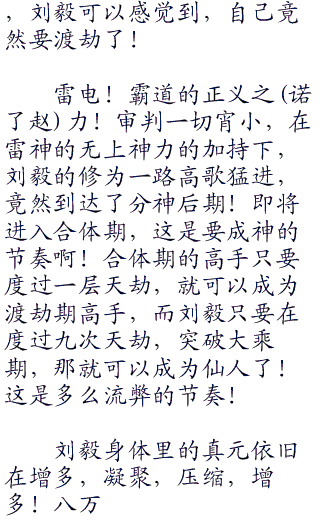 ，刘毅可以感觉到，自己竟
然要渡劫了！
雷电！霸道的正义之(诺
了赵)力！审判一切宵小，在
雷神的无上神力的加持下，
刘毅的修为一路高歌猛进，
竟然到达了分神后期！即将
进入合体期，这是要成神的
节奏啊！合体期的高手只要
度过一层天劫，就可以成为
渡劫期高手，而刘毅只要在
度过九次天劫，突破大乘
期，那就可以成为仙人了！
这是多么流弊的节奏！
刘毅身体里的真元依旧
在增多，凝聚，压缩，增
多！八万